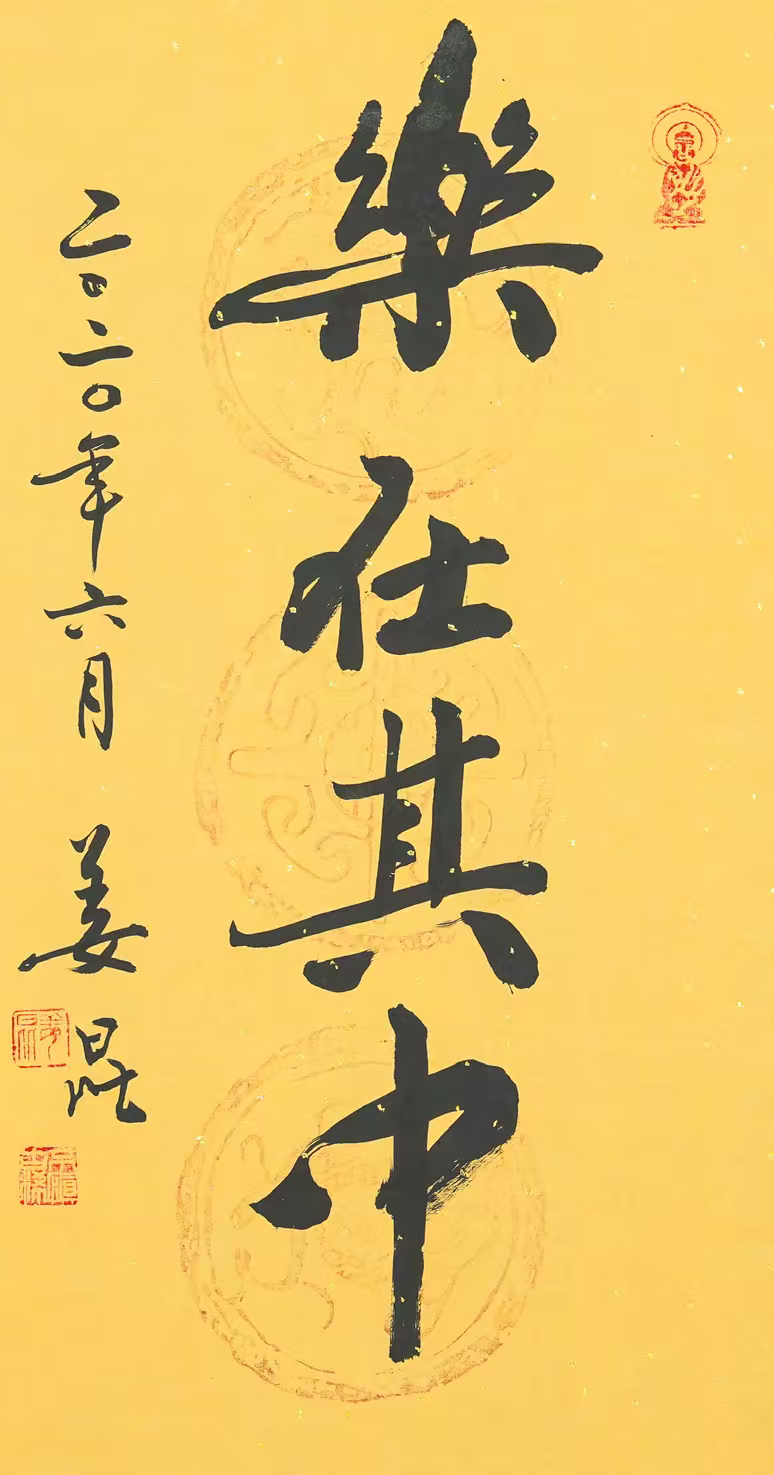 樂在其中
二〇二〇年六月 姜昆